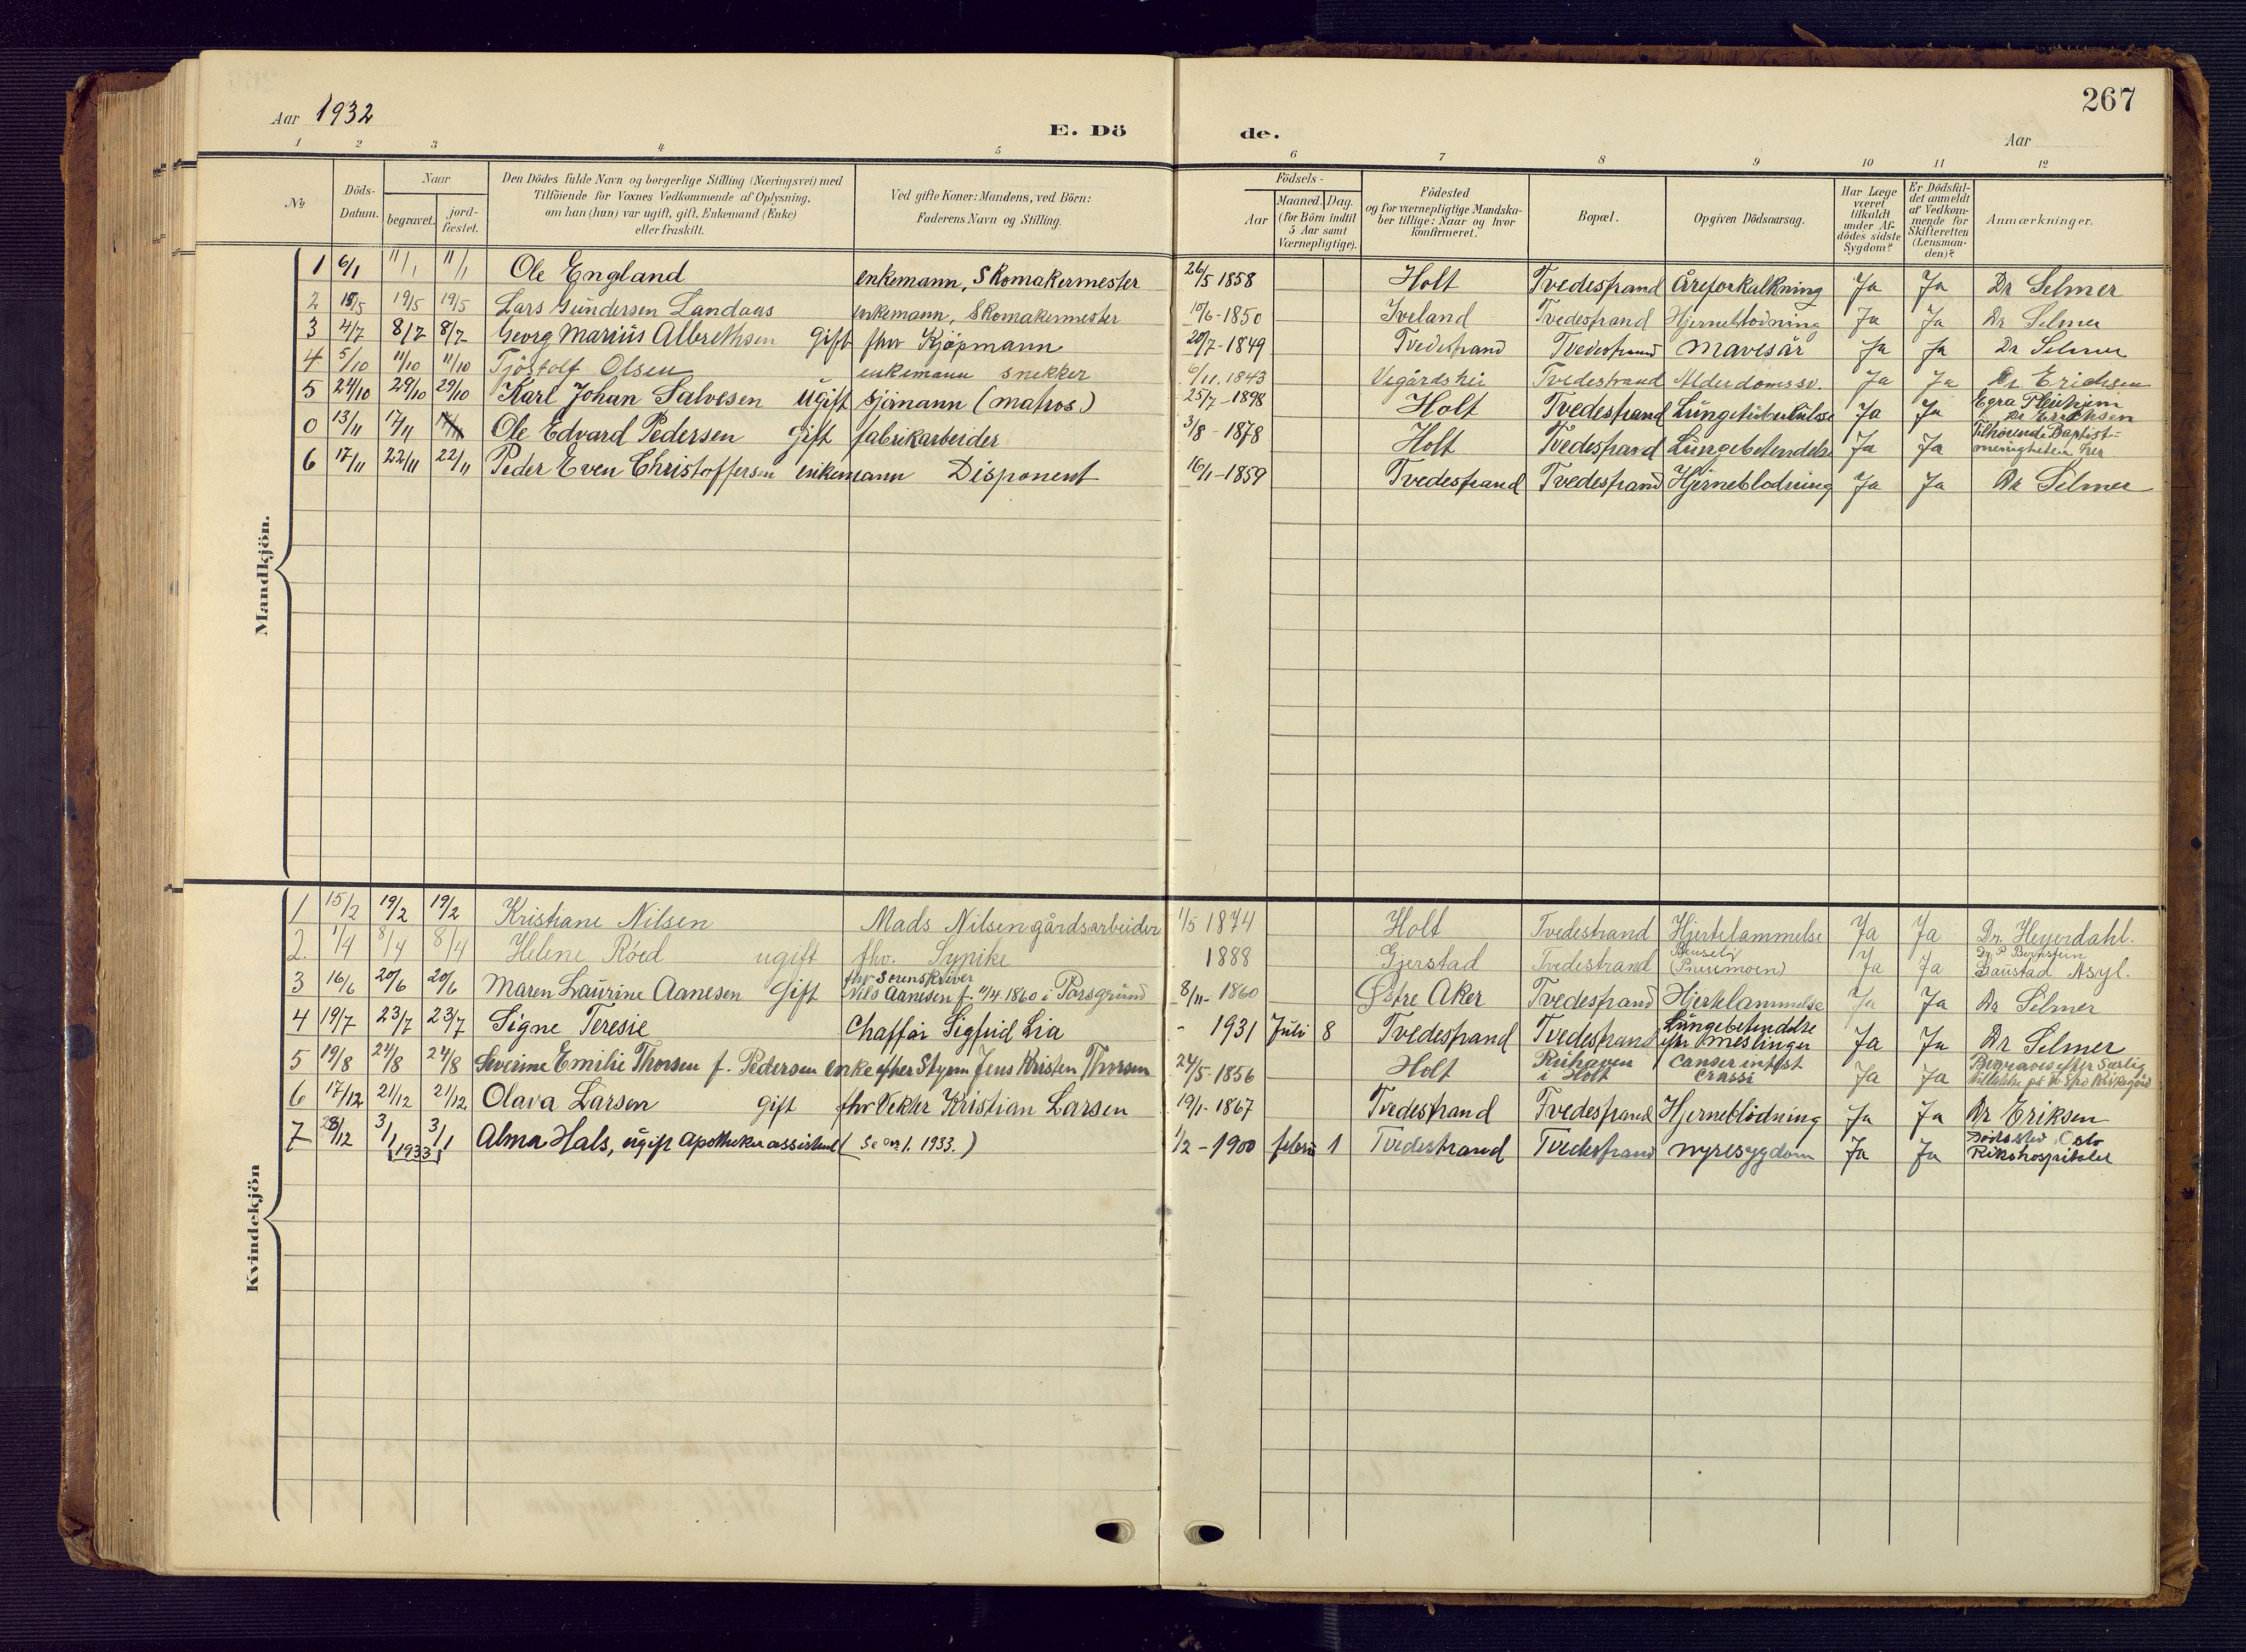 267
Aar 1932
E. Dö de.
Aar
1 2 3 4 5 6 7 8 9 10 11 12
№ Döds-Datum. Naar begravet. jord-fæstet. Den Dödes fulde Navn og borgerlige Stilling (Næringsvei) med Tilföiende for Voxnes Vedkommende af Oplysning, om han (hun) var ugift, gift, Enkemand (Enke) eller fraskilt. Ved gifte Koner: Mandens, ved Börn: Faderens Navn og Stilling. Födsels- Aar Maaned. Dag. (for Börn indtil 5 Aar samt Værnepligtige). Födested og for værnepligtige Mandska-ber tillige: Naar og hvor konfirmeret. Bopæl. Opgiven Dödsaarsag. Har Læge været tilkaldt under Af-dödes sidste Sygdom? Er Dödsfal-det anmeldt af Vedkom-mende for Skifteretten (Lensman-den)? Anmærkninger.
Mandkjön.
1 6/1 11/1 11/1 Ole England enkemann, Skomakermester 26/5 1858 Holt Tvedestrand Åreforkalkning Ja Ja Dr Selmer
2 15/5 19/5 19/5 Lars Gundersen Landaas enkemann, Skomakermester 10/6-1850 Iveland Tvedestrand Hjerneblødning Ja Ja Dr Selmer
3 4/7 8/7 8/7 Georg Marius Albrethsen Gift fhv Kjøpmann 20/7-1849 Tvedestrand Tvedestrand Mavesår Ja Ja Dr Selmer
4 5/10 11/10 11/10 Tjöstolf Olsen enkemann snekker 6/11.1843 Vegårdshei Tvedestrand Alderdomssv. Ja Ja Dr Erichsen
5 24/10 29/10 29/10 Karl Johan Salvesen Ugift Sjömann (matros) 25/7-1898 Holt Tvedestrand Lungetuberkulose Ja Ja Egra Pleiehjem Dr Erichsen
0 13/11 17/11 Ole Edvard Pedersen Gift fabrikarbeider 3/8-1878 Holt Tvedestrand Lungebetendelse Ja Ja Tilhörende Baptist-menigheten her
6 17/11 22/11 22/11 Peder Even Christoffersen enkemann Disponent 16/1-1859 Tvedestrand Tvedestrand Hjerneblodning Ja Ja Dr Selmer
Kvindekjön
1 15/2 19/2 19/2 Kristiane Nilsen Mads Nilsen gårdsarbeider 1/5 1874 Holt Tvedestrand Hjertelammelse Ja Ja Dr. Heyerdahl.
2. 1/4 8/4 8/4 Helene Röed ugift fhv. Sypike 1888 Gjerstad Tvedestrand (Pneumoen) Ja Ja Dr. P. Asyl.
3 16/6 20/6 20/6 Maren Laurine Aanesen Gift fhv Sorenskriver Nils Aanesen f. 11/4 1860 i Porsgrund 8/11-1860 Østre Aker Tvedestrand Hjertelammelse Ja Ja Dr Selmer
4 19/7 23/7 23/7 Signe Teresie Chaffør Sigfrid Lia - 1931 Juli 8 Tvedestrand Tvedestrand Lungebetendelse efter meslinger Ja Ja Dr Selmer
5 19/8 24/8 24/8 Severine Emilie Thorsen f. Pedersen enke efter Styrm Jens Kristen Thorsen 24/5-1856 Holt i Holt Cancer intest crassi Ja Ja Begraves efter særlig tillatelse på kirkegård
6 17/12 21/12 21/12 Olava Larsen gift fhv Vekter Kristian Larsen 19/1-1867 Tvedestrand Tvedestrand Hjerneblödning Ja Ja Dr Eriksen
7 28/12 3/1 3/1 1933 Alma Hals, ugift Apothekerassistent (Se nr 1. 1933.) 1/2-1900 febru 1 Tvedestrand Tvedestrand nyresygdom Ja Ja Dödssted Oslo Rikshospitalet